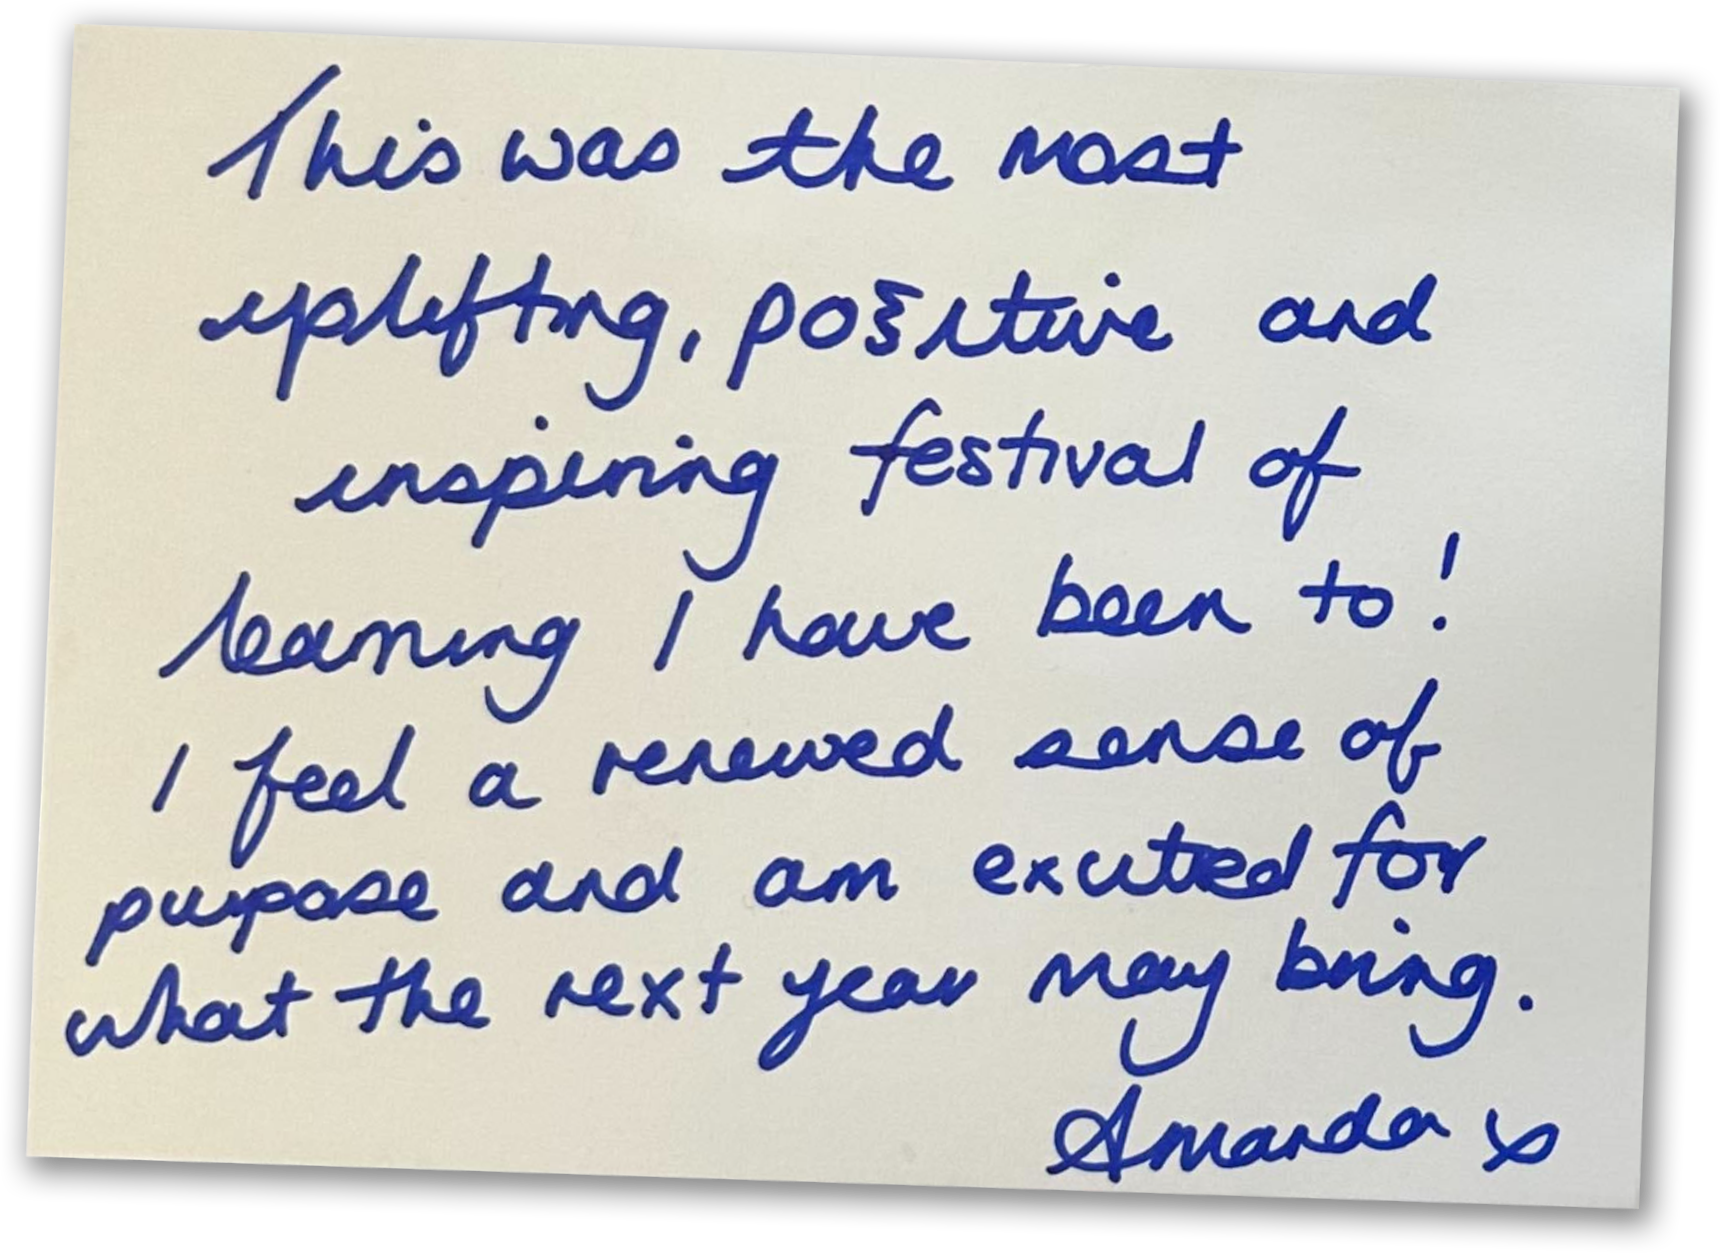 This was the most
uplifting, positive and
inspiring festival of
learning I have been to!
I feel a renewed sense of
purpose and am excited for
what the next year may bring.
Amanda x